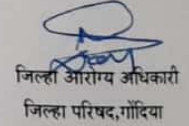 जिल्हा आरोग्य अधिकारी
जिल्हा परिषद,गोंदिया